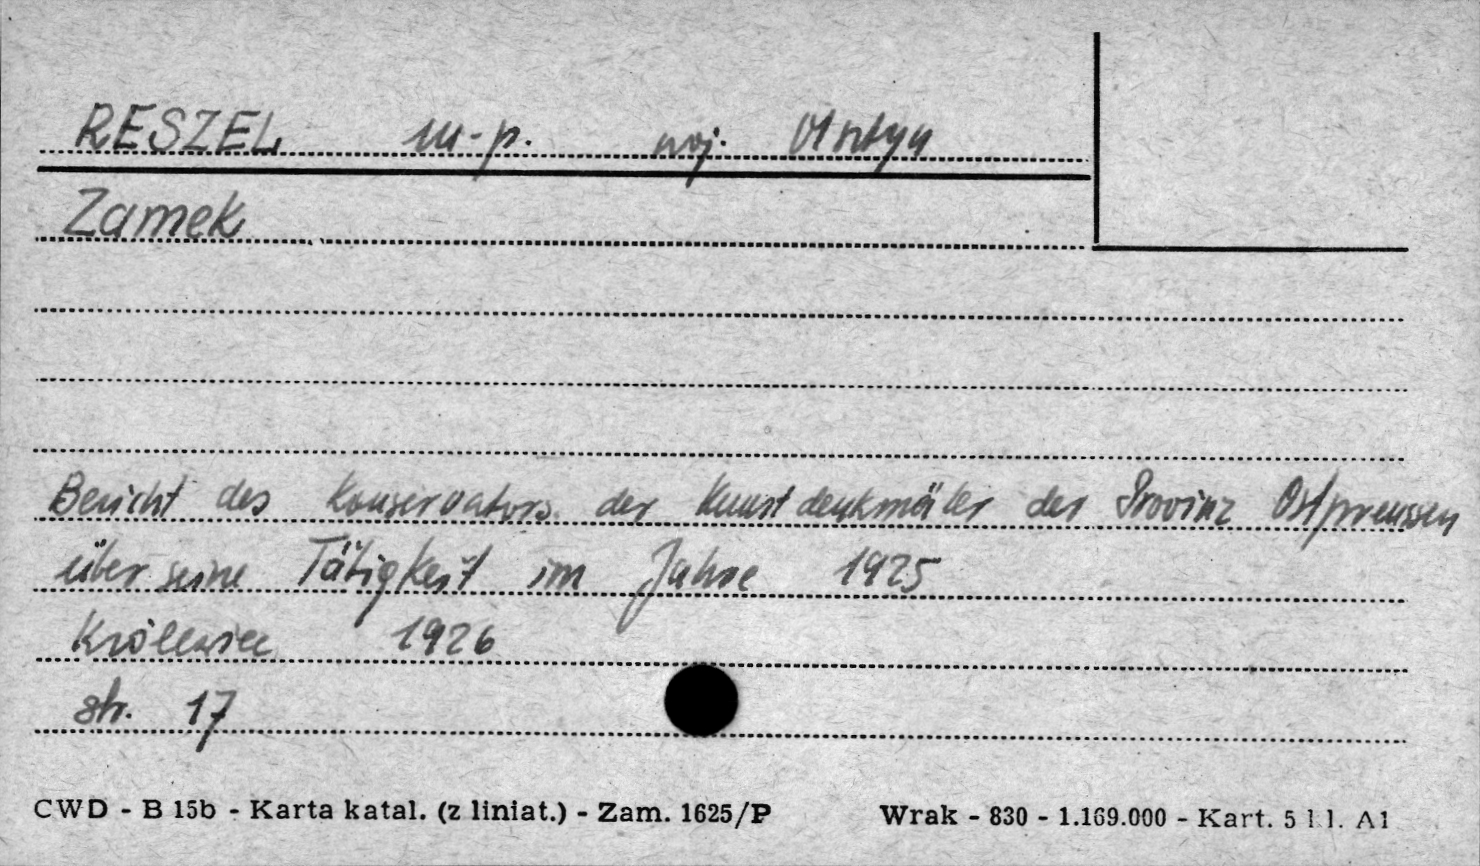 RESZEL m-p. woj. Olsztyn
Zamek
Bericht des Konservators der Kunstdenkmäler der Provinz Ostpreussen
über seine Tätigkeit im Jahre 1925
Królewiec 1926
str. 17
CWD - B 15b - Karta katal. (z liniat.) - Zam. 1625/P Wrak - 830 - 1.169.000 - Kart. 5 kl. A1